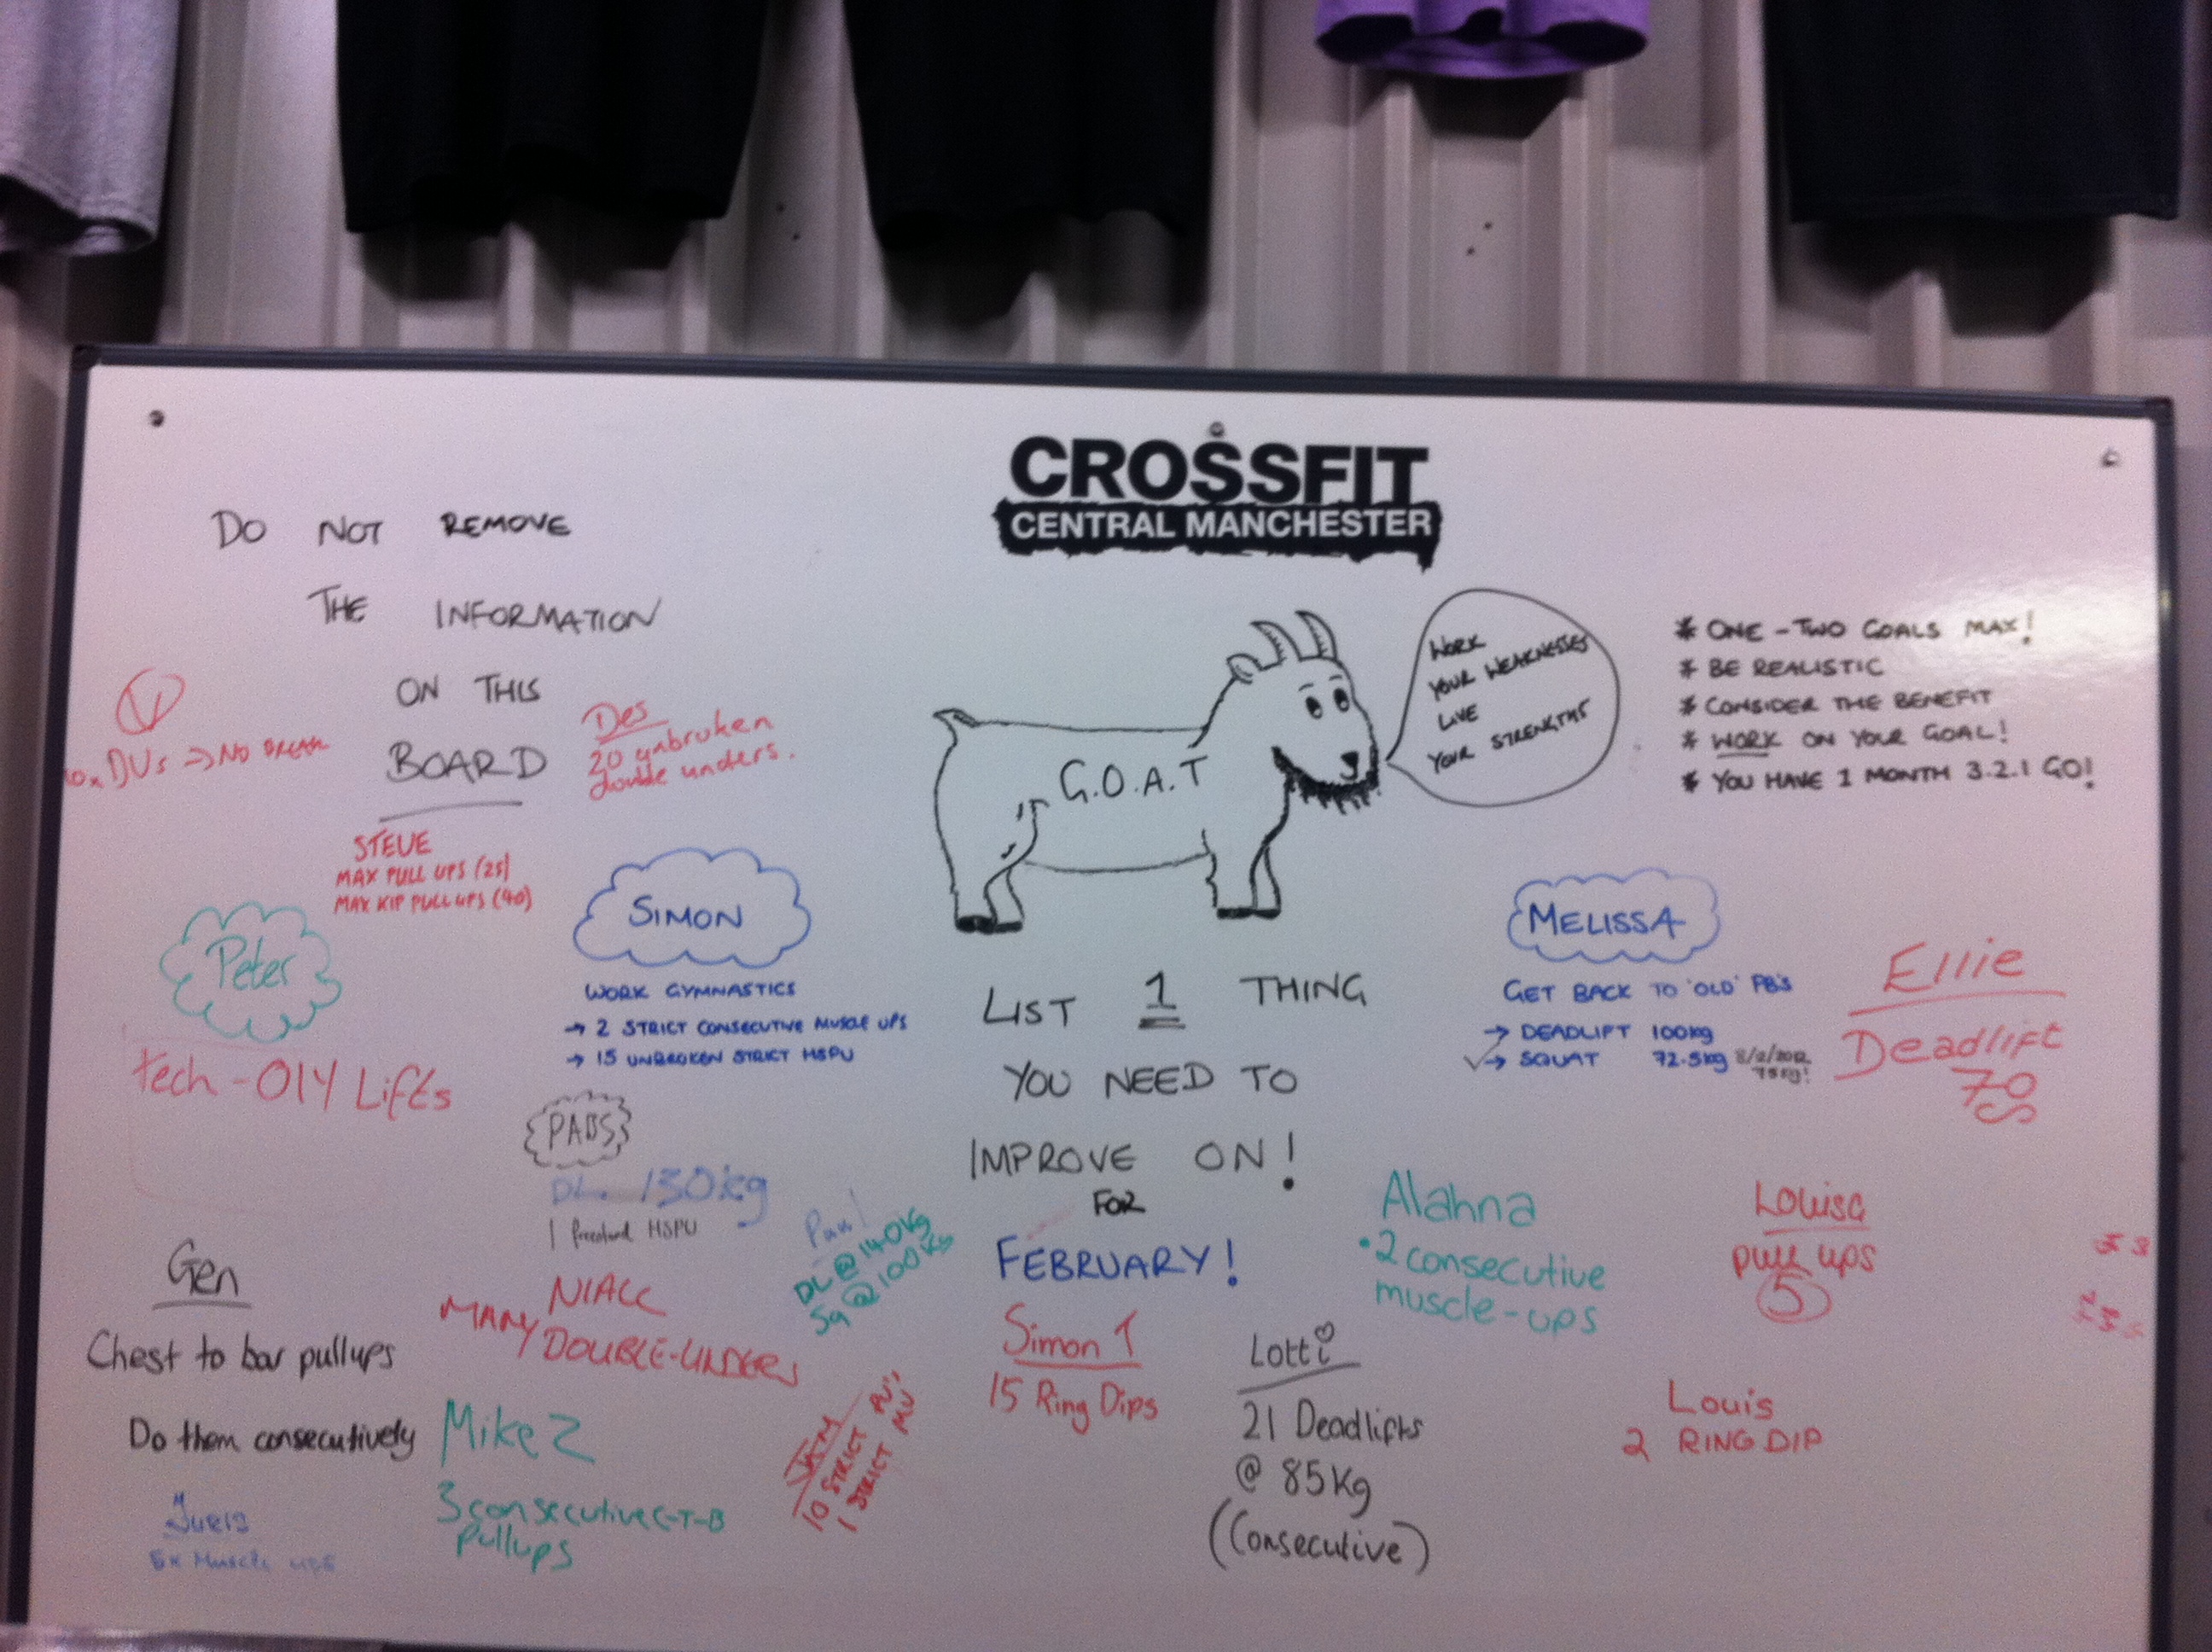 CROSSFIT
CENTRAL MANCHESTER
DO NOT REMOVE
THE INFORMATION
ON THIS
BOARD
WORK
YOUR WEAKNESSES
LIVE
YOUR STRENGTHS
G.O.A.T
* ONE - TWO GOALS MAX!
* BE REALISTIC
* CONSIDER THE BENEFIT
* WORK ON YOUR GOAL!
* YOU HAVE 1 MONTH 3.2.1 GO!
DUs => NO BREAK
Des
20 unbroken
double unders.
STEVE
MAX PULL UPS (25)
MAX KIP PULL UPS (40)
Peter
tech - OlY Lifts
SIMON
WORK GYMNASTICS
→ 2 STRICT CONSECUTIVE MUSCLE UPS
→ 15 UNBROKEN STRICT HSPU
LIST 1 THING
YOU NEED TO
IMPROVE ON!
FOR
FEBRUARY!
MELISSA
GET BACK TO 'OLD' PB'S
→ DEADLIFT 100kg
✓→ SQUAT 72.5kg 8/2/2012
75kg!
Ellie
Deadlift
70
PABS
DL. 130kg
1 freestand HSPU
Paul
DL @ 140kg
Sq @ 100kg
Alahna
• 2 consecutive
muscle-ups
Louisa
pull ups
5
Gen
Chest to bar pullups
Do them consecutively
NIALL
MANY DOUBLE-UNDERS
Mike Z
3 consecutive C-T-B
pullups
10 STRICT PU's
1 STRICT MU
Simon T
15 Ring Dips
Lotti
21 Deadlifts
@ 85Kg
(Consecutive)
Louis
2 RING DIP
Juris
5x Muscle ups